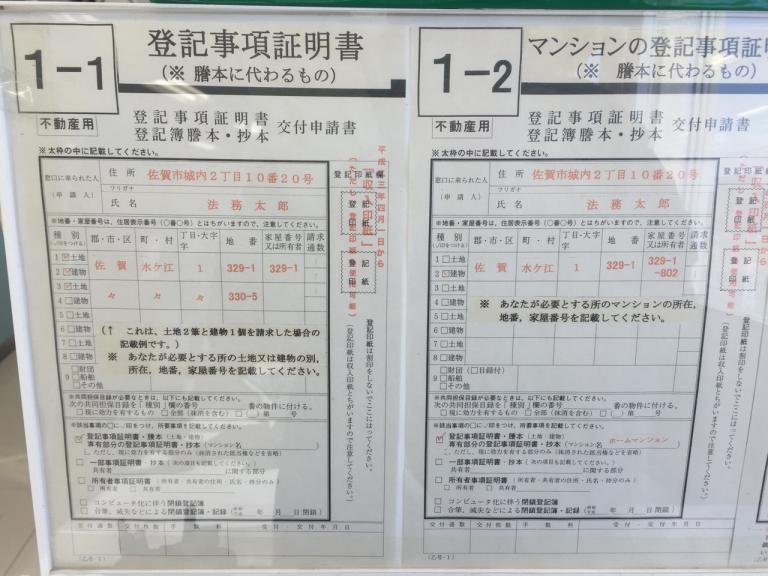 1-1
登記事項証明書
(※ 謄本に代わるもの)
不動産用
登記事項証明書
登記簿謄本・抄本 交付申請書
※太枠の中に記載してください。
窓口に来られた人
(申請人)
住所 佐賀市城内2丁目10番20号
フリガナ
氏名 法務太郎
※地番・家屋番号は、住居表示番号(○番○号)とはちがいますので、注意してください。
種別
(✓印をつける)
郡・市・区
町・村
丁目・大字
字
地番
家屋番号
又は所有者
請求
通数
1 土地 佐賀 水ケ江 1 329-1 329-1
2 建物
3 土地 々 々 1 330-5
4 建物
5 土地
6 建物
7 土地
8 建物
(↑ これは、土地2筆と建物1個を請求した場合の
記載例です。)
※ あなたが必要とする所の土地又は建物の別,
所在,地番,家屋番号を記載してください。
9 □財団(□目録付)
□船舶
□その他
※共同担保目録が必要なときは、以下にも記載してください。
次の共同担保目録を「種別」欄の番号 番の物件に付ける。
□現に効力を有するもの □全部(抹消を含む) □( )第 号
※該当事項の□に✓印をつけ、所要事項を記載してください。
登記事項証明書・謄本(土地・建物)
専有部分の登記事項証明書・抄本(マンション名 )
□ただし、現に効力を有する部分のみ(抹消された抵当権などを省略)
□一部事項証明書・抄本(次の項目も記載してください。)
共有者 に関する部分
□所有者事項証明書(所有者・共有者の住所・氏名・持分のみ)
□所有者 □共有者
□コンピュータ化に伴う閉鎖登記簿
□合筆、滅失などによる閉鎖登記簿・記録( 年 月 日閉鎖)
交付通数 交付枚数 手数料 受付・交付年月日
(乙号・1)
登記印紙欄
登記
印紙
登記
印紙
登記印紙は割印をしないでここにはってください。
(登記印紙は収入印紙とちがいますので注意してください。)
1-2
マンションの登記事項証明
(※ 謄本に代わるもの)
不動産用
登記事項証明書
登記簿謄本・抄本 交付申請書
※太枠の中に記載してください。
窓口に来られた人
(申請人)
住所 佐賀市城内2丁目10番20号
フリガナ
氏名 法務太郎
※地番・家屋番号は、住居表示番号(○番○号)とはちがいますので、注意してください。
種別
(✓印をつける)
郡・市・区
町・村
丁目・大字
字
地番
家屋番号
又は所有者
請求
通数
1 土地
2 建物 佐賀 水ケ江 1 329-1 329-1
-802
3 土地
4 建物
5 土地
6 建物
7 土地
8 建物
※ あなたが必要とする所のマンションの所在,
地番,家屋番号を記載してください。
9 □財団(□目録付)
□船舶
□その他
※共同担保目録が必要なときは、以下にも記載してください。
次の共同担保目録を「種別」欄の番号 番の物件に付ける。
□現に効力を有するもの □全部(抹消を含む) □( )第 号
※該当事項の□に✓印をつけ、所要事項を記載してください。
登記事項証明書・謄本(土地・建物)
専有部分の登記事項証明書・抄本(マンション名 ホームマンション )
□ただし、現に効力を有する部分のみ(抹消された抵当権などを省略)
□一部事項証明書・抄本(次の項目も記載してください。)
共有者 に関する部分
□所有者事項証明書(所有者・共有者の住所・氏名・持分のみ)
□所有者 □共有者
□コンピュータ化に伴う閉鎖登記簿
□合筆、滅失などによる閉鎖登記簿・記録( 年 月 日閉鎖)
交付通数 交付枚数 手数料 受付・交付年月日
(乙号・1)
登記印紙
登記
印紙
登記
印紙
登記印紙は割印をしないでここにはってください。
(登記印紙は収入印紙とちがいますので注意